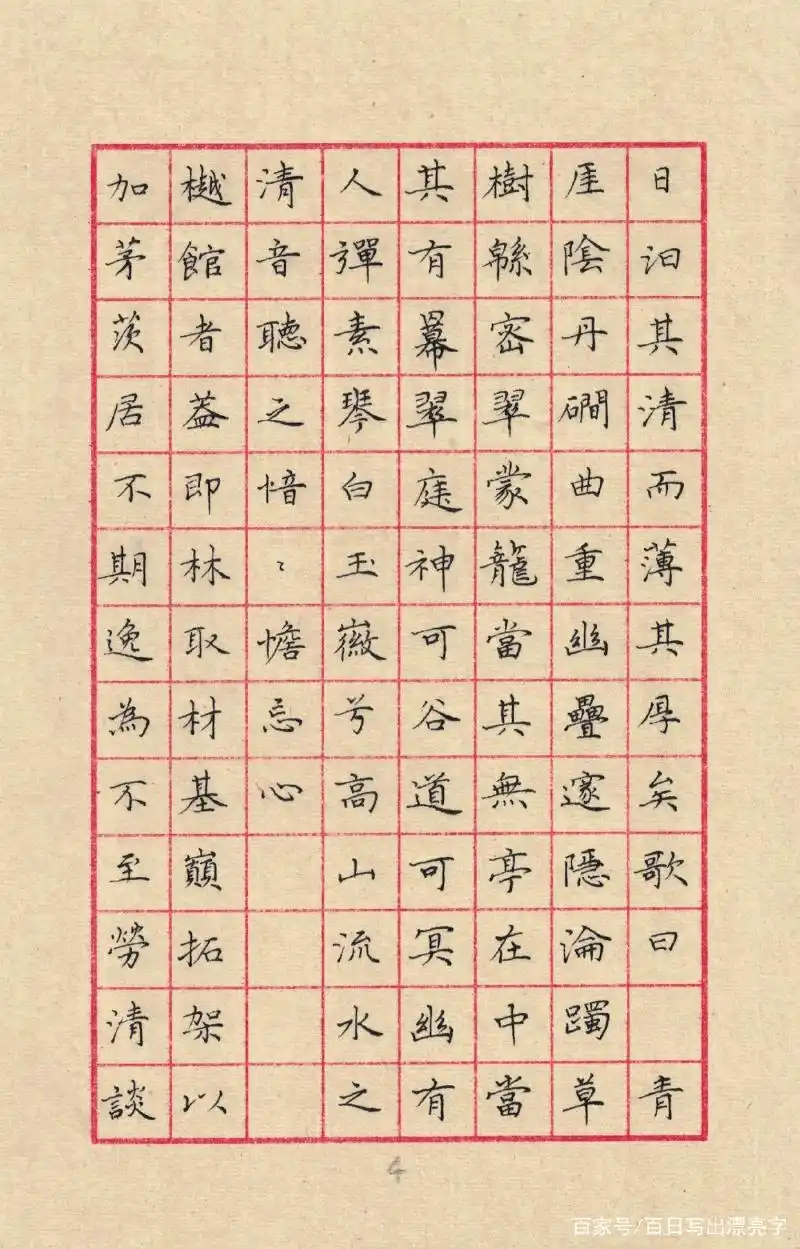 日汩其清而薄其厚矣歌曰 青
厓陰丹磵曲重幽疊邃隱淪躅草
樹緜密翠蒙龍當其無亭在中當
其有羃翠庭神可谷道可冥幽有
人彈素琴白玉徽兮高山流水之
清音聽之愔〻憺忘心
樾館者葢即林取材基巔拓架以
加茅茨居不期逸為不至勞清談
4
百家号/百日写出漂亮字